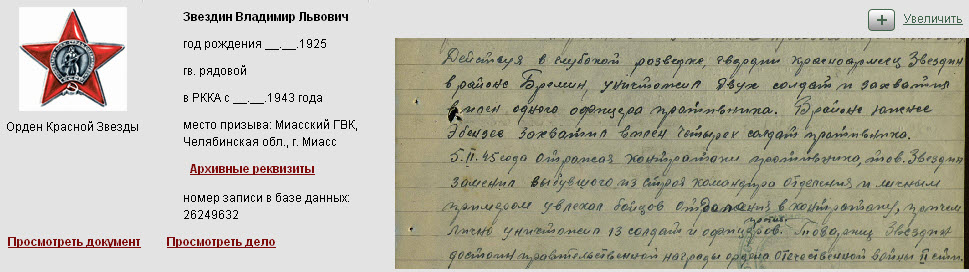 Звездин Владимир Львович
год рождения __.__.1925
гв. рядовой
в РККА с __.__.1943 года
место призыва: Миасский ГВК,
Челябинская обл., г. Миасс
Архивные реквизиты
номер записи в базе данных:
26249632
Орден Красной Звезды
Просмотреть документ
Просмотреть дело
Увеличить
Действуя в глубокой разведке, гвардии красноармеец Звездин
в районе Бремин, уничтожил двух солдат и захватил
в плен одного офицера противника. В районе южнее
Эбензее захватил в плен четырех солдат противника.
5.II.45 года отражая контратаки противника, тов. Звездин
заменил выбывшего из строя командира отделения и личным
примером увлекал бойцов отделения в контратаку, причем
лично уничтожил 13 солдат и офицеров. Товарищ Звездин
достоин правительственной награды ордена Отечественной войны II степ.